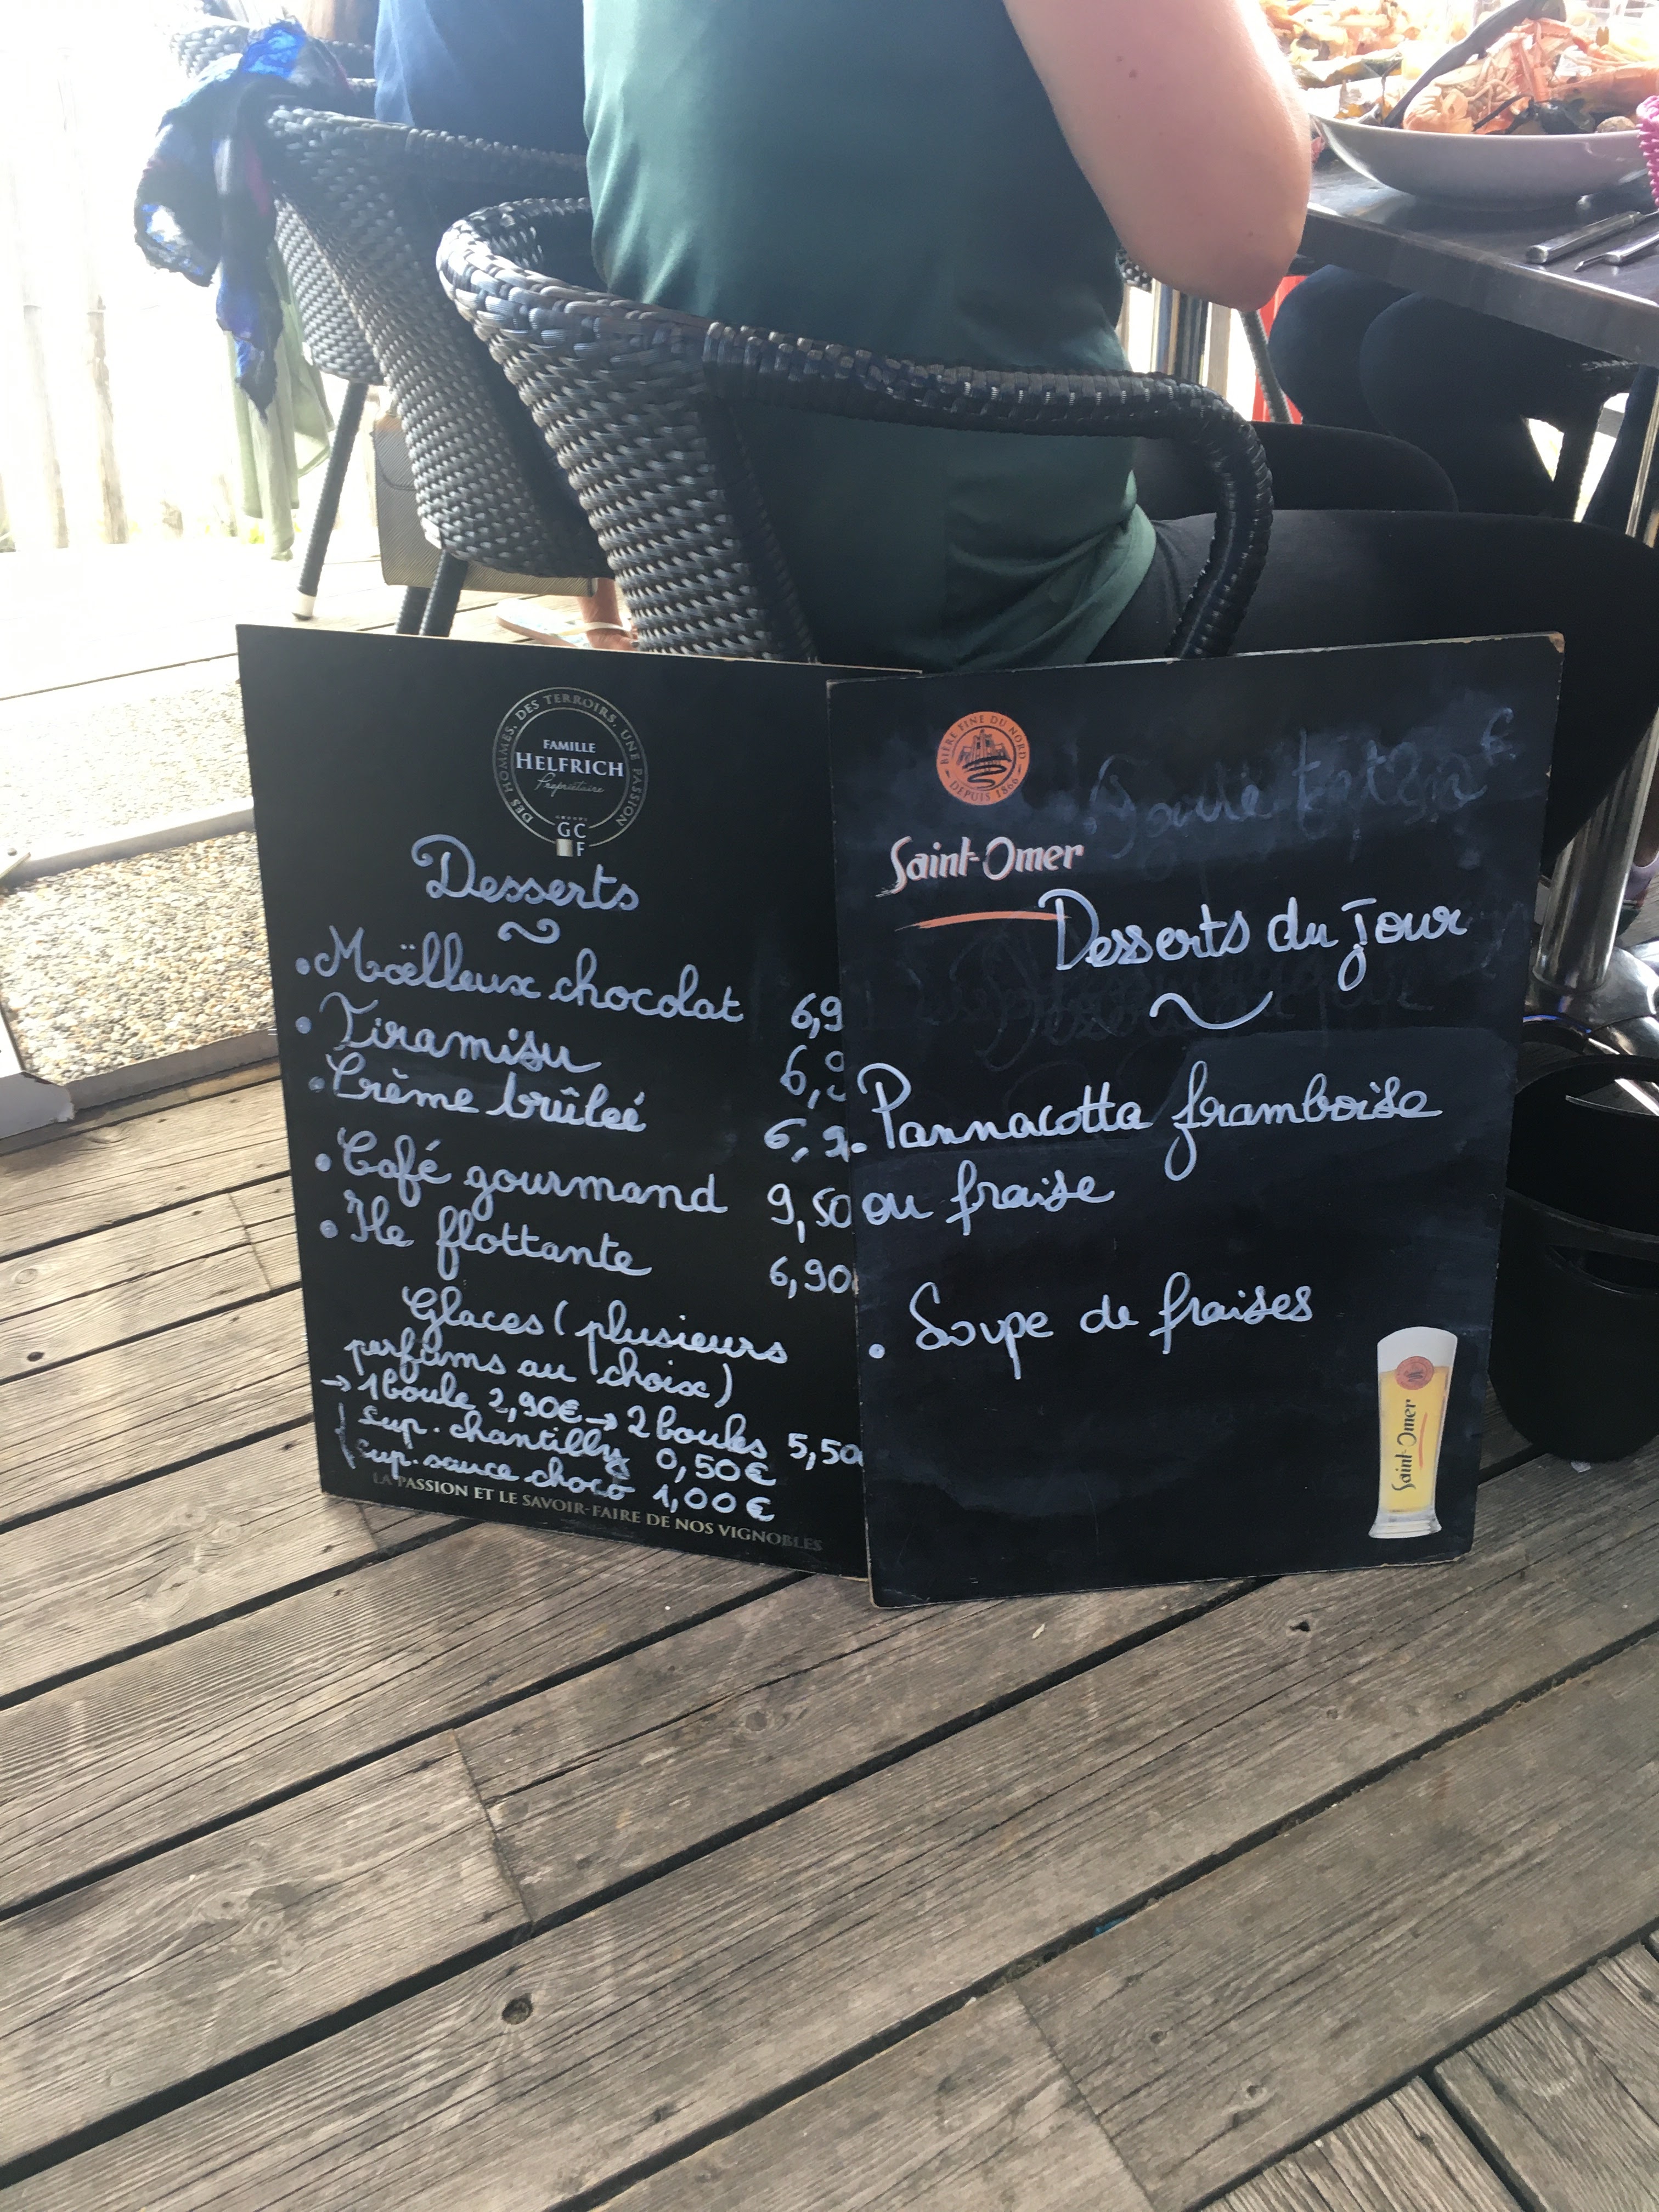 DES HOMMES, DES TERROIRS, UNE PASSION
FAMILLE
HELFRICH
Propriétaire
GC
F
Desserts
• Moëlleux chocolat 6,9
• Tiramisu 6,9
• Crème brûleé 6,
• Café gourmand 9,50
• Ile flottante 6,90
Glaces (plusieurs
parfums au choix)
→ 1 boule 2,90€ → 2 boules 5,50
sup. chantilly 0,50€
sup. sauce choco 1,00€
LA PASSION ET LE SAVOIR-FAIRE DE NOS VIGNOBLES
BIÈRE FINE DU NORD
DEPUIS 1866
Saint-Omer
Desserts du jour
• Pannacotta framboise
ou fraise
• Soupe de fraises
Saint-Omer